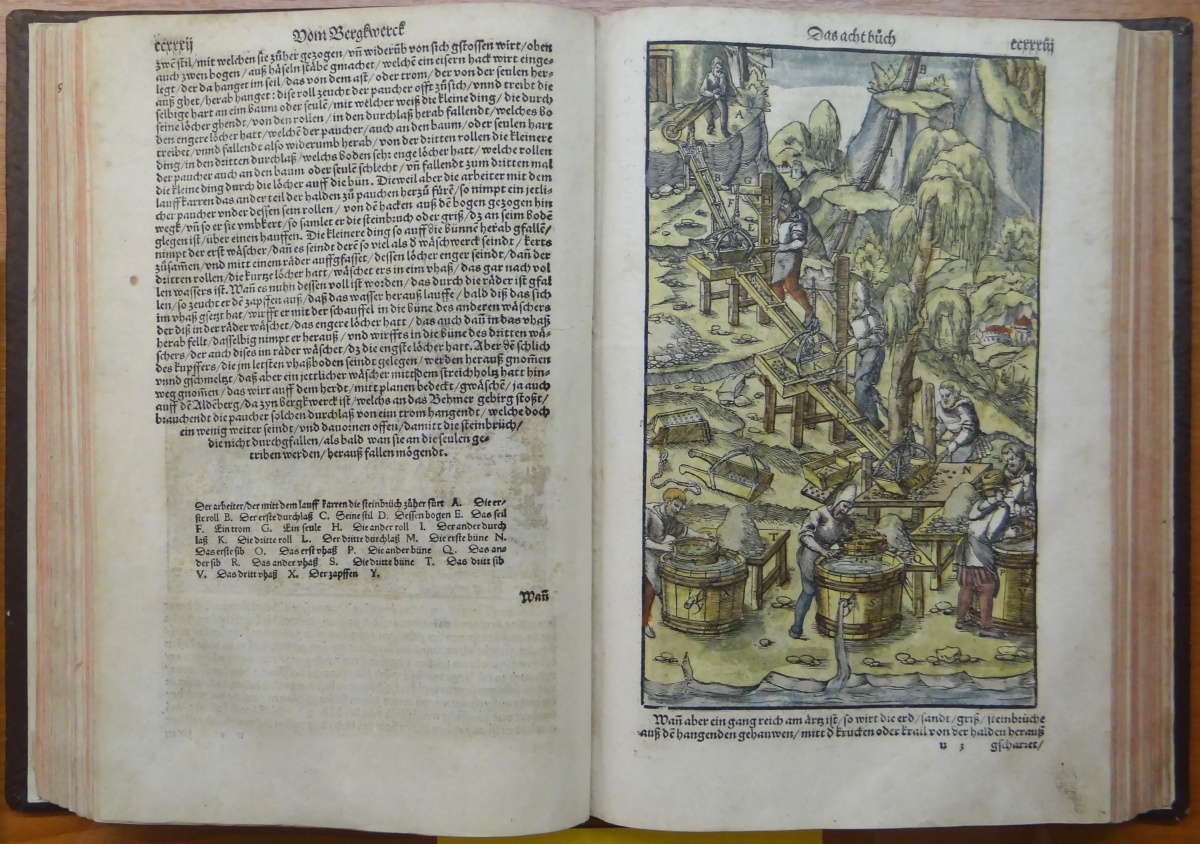 ccxxxij
Vom Bergkwerck
zwen stil / mit welchen sie zůher gezogen / vñ widerũb von sich gstossen wirt / oben
auch zwen bogen / auß häseln stäbẽ gmachet / welchẽ ein eisern hack wirt einge-
legt / der da hanget im seil / das von dem ast / oder trom / der von der seulen her-
auß ghet / herab hanget : dise roll zeucht der paucher offt zůsich / vnnd treibt die
selbige hart an ein baum oder seulẽ / mit welcher weiß die kleine ding / die durch
seine löcher ghendt / von den rollen / in den durchlaß herab fallendt / welches bo
den engere löcher hatt / welchẽ der paucher / auch an den baum / oder seulen hart
treibet / vnnd fallendt also widerumb herab / von der dritten rollen die kleinere
ding / in den dritten durchlaß / welchs boden sehr enge löcher hatt / welche rollen
der paucher auch an den baum oder seulẽ schlecht / vñ fallendt zum dritten mal
die kleine ding durch die löcher auff die bün. Dieweil aber die arbeiter mit dem
lauffkarren das ander teil der halden zů pauchen herzů fůrẽ / so nimpt ein jetli-
cher paucher vnder dessen sein rollen / von dẽ hacken auß dẽ bogen gezogen hin
wegk / vñ so er sie vmbkert / so samlet er die steinbruch oder griß / dz an seim bodẽ
glegen ist / über einen hauffen. Die kleinere ding so auff die bünne herab gfallẽ /
nimpt der erst wäscher / dañ es seindt derẽ so viel als d̃ wäschwerck seindt / kerts
zůsamen / vnd mit einem räder auffgfasset / dessen löcher enger seindt / dañ der
dritten rollen / die kurtze löcher hatt / wäschet ers in eim vhaß / das gar nach vol
len wassers ist. Wañ es nuhn dessen voll ist worden / das durch die räder ist gfal
len / so zeucht er dẽ zapffen auß / daß das wasser herauß lauffe / bald diß das sich
im vhaß gsetzt hat / wirfft er mit der schauffel in die büne des anderen wäschers
der diß in der räder wäschet / das engere löcher hatt / das auch dañ in das vhaß
herab fellt / dasselbig nimpt er herauß / vnd wirffts in die büne des dritten wä-
schers / der auch dises im räder wäschet / dz die engste löcher hatt. Aber dẽ schlich
des kupffers / die jm letsten vhaßboden seindt gelegen / werden herauß gnomen
vnnd gschmeltzt / daß aber ein jettlicher wäscher mitt dem streichholtz hatt hin-
weg gnomen / das wirt auff dem herdt / mitt planen bedeckt / gwäschen / ja auch
auff dẽ Aldẽberg / da zyn bergkwerck ist / welchs an das Behmer gebirg stoßt /
brauchendt die paucher solchen durchlaß von eim trom hangendt / welche doch
ein wenig weiter seindt / vnd dauornen offen / damitt die steinbrüch /
die nicht durchgfallen / als bald wan sie an die seulen ge-
triben werden / herauß fallen mögendt.
Der arbeiter / der mitt dem lauff karren die steinbrüch zůher fůrt A. Die er-
ste roll B. Der erste durchlaß C. Seine stil D. Dessen bogen E. Das seil
F. Ein trom G. Ein seule H. Die ander roll I. Der ander durch
laß K. Die dritte roll L. Der dritte durchlaß M. Die erste büne N.
Das erste sib O. Das erst vhaß P. Die ander büne Q. Das an-
der sib R. Das ander vhaß S. Die dritte büne T. Das dritt sib
V. Das dritt vhaß X. Der zapffen Y.
Wañ
Das acht bůch
ccxxxiij
B
A
I
B
G
F
H
N
T
S
Y
Wañ aber ein gang reich am ärtz ist / so wirt die erd / sandt / griß / steinbrüche
auß dẽ hangenden gehauwen / mitt d̃ krucken oder krail von der halden herauß
u 3
gscharret /